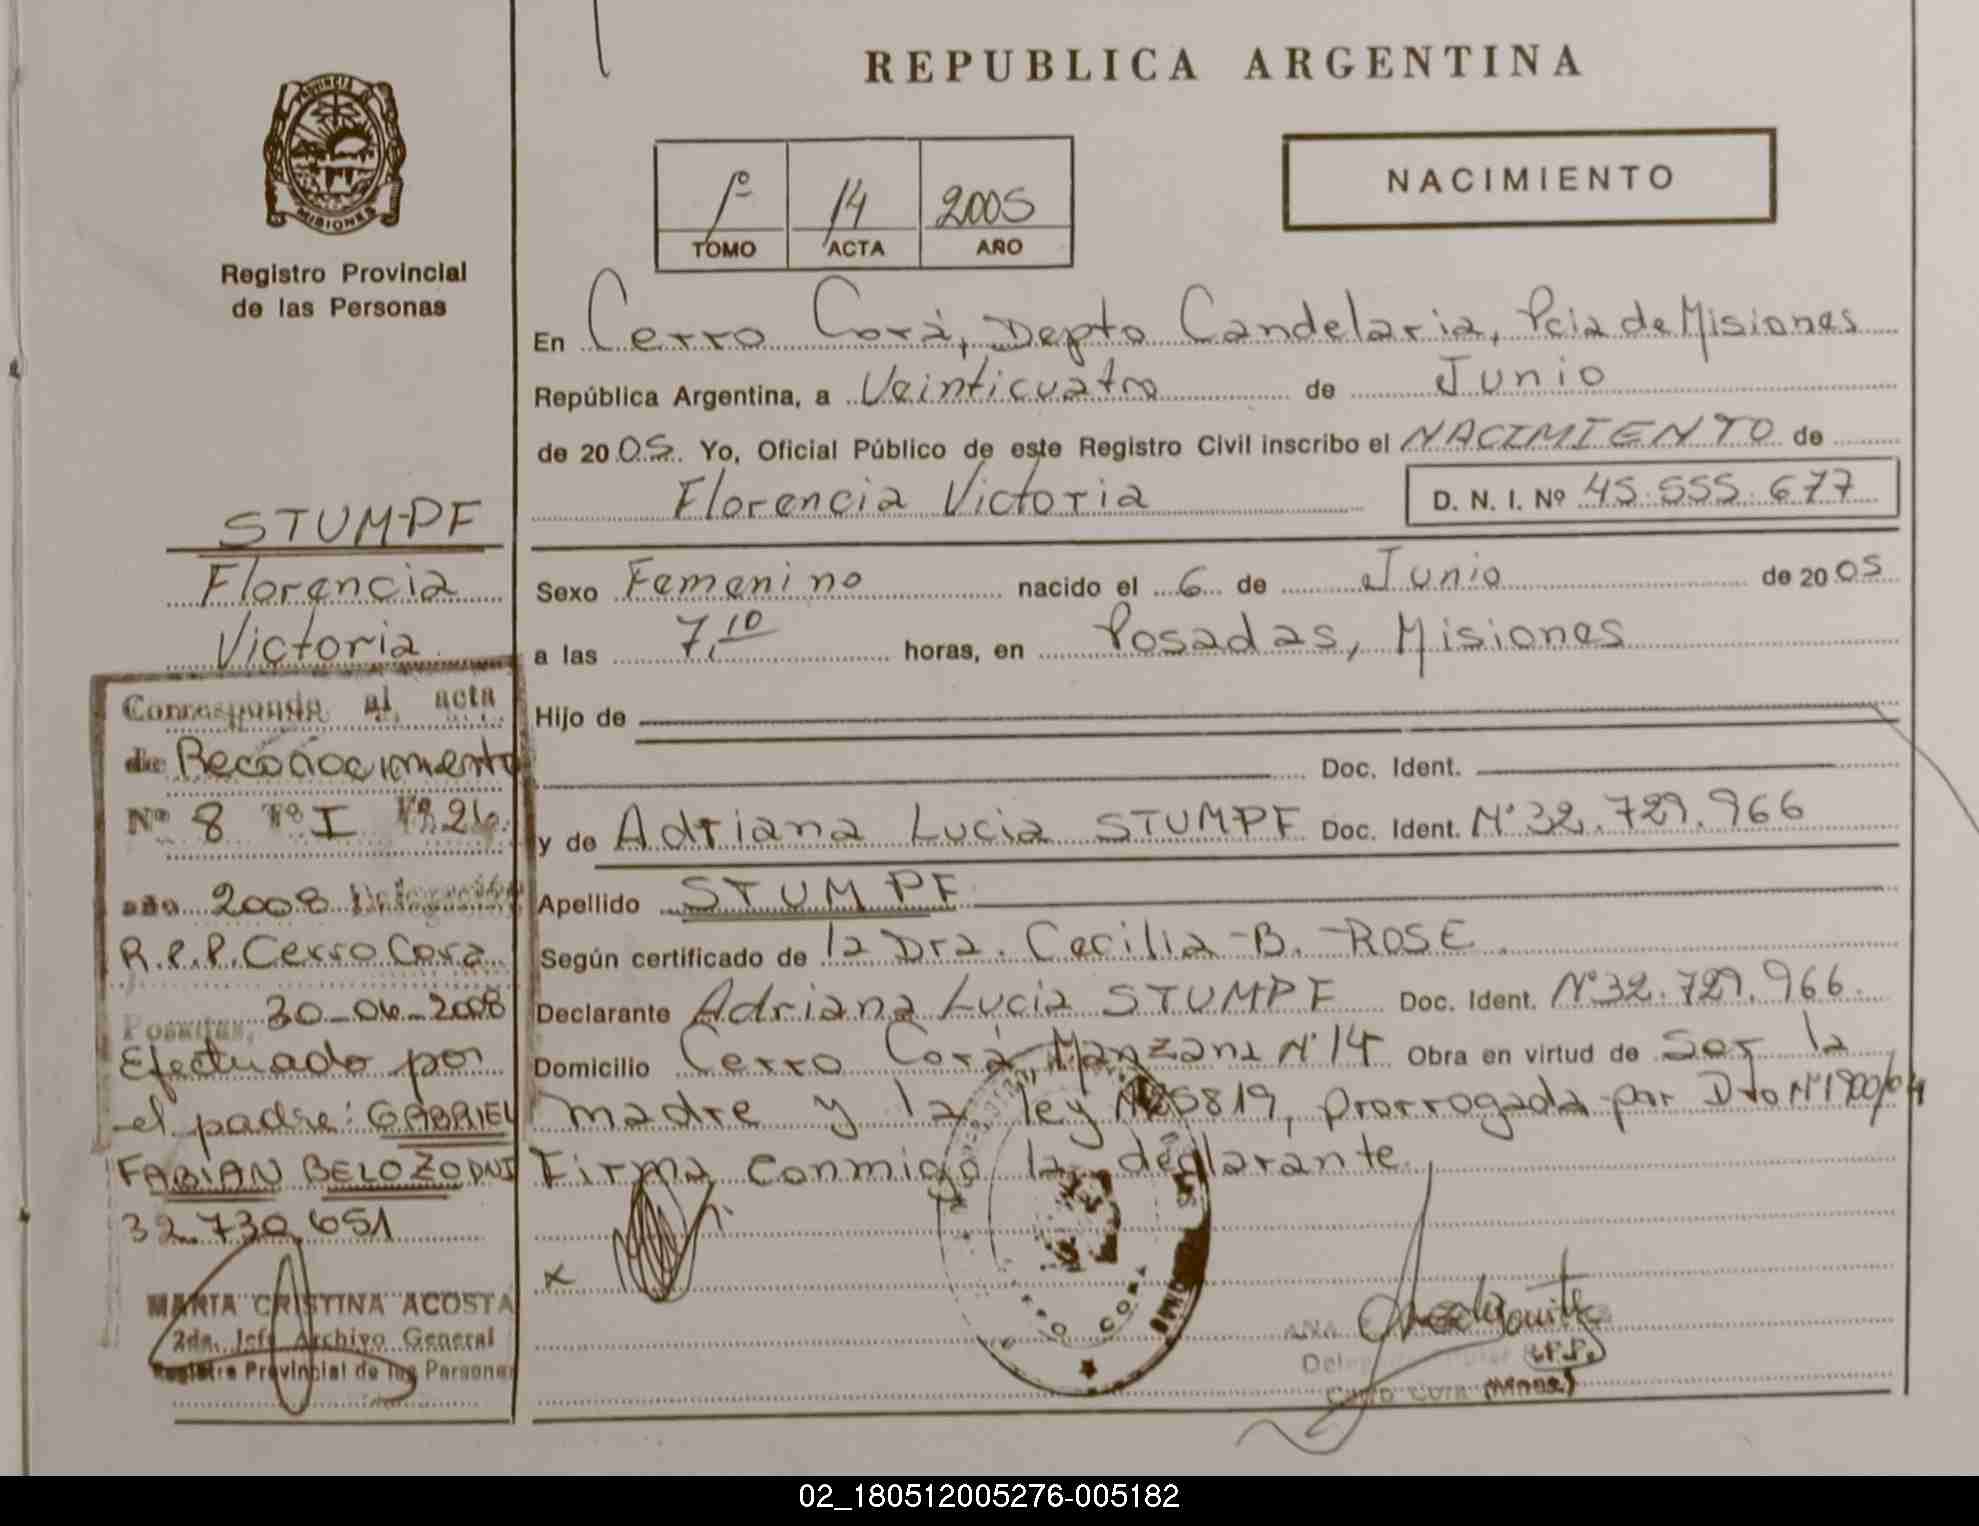 PROVINCIA DE
MISIONES
Registro Provincial
de las Personas
STUMPF
Florencia
Victoria
Corresponde al acta
de Reconocimiento
Nº 8 Tº I Fº 26
año 2008 Delegación
R.P.P. Cerro Cora
Posadas, 30-06-2008
Efectuado por
el padre: GABRIEL
FABIAN BELOZO DNI
32.730.651
MARIA CRISTINA ACOSTA
2da. Jefe Archivo General
Registro Provincial de las Personas
REPUBLICA ARGENTINA
1º 14 2005
TOMO ACTA AÑO
NACIMIENTO
En Cerro Corá, Depto Candelaria, Pcia de Misiones
República Argentina, a Veinticuatro de Junio
de 2005. Yo, Oficial Público de este Registro Civil inscribo el NACIMIENTO de
Florencia Victoria D. N. I. Nº 45.555.677
Sexo Femenino nacido el 6 de Junio de 2005
a las 7,10 horas, en Posadas, Misiones
Hijo de
Doc. Ident.
y de Adriana Lucia STUMPF Doc. Ident. Nº 32.729.966
Apellido STUMPF
Según certificado de la Dra. Cecilia -B. -ROSE
Declarante Adriana Lucia STUMPF Doc. Ident. Nº 32.729.966.
Domicilio Cerro Corá Manzana Nº 14 Obra en virtud de Ser la
madre y la ley Nº 25819, prorrogada por Dto Nº 1900/04
Firma conmigo la declarante
x
ANA
R.P.P.
Cerro Cora (Mnes)
02_180512005276-005182